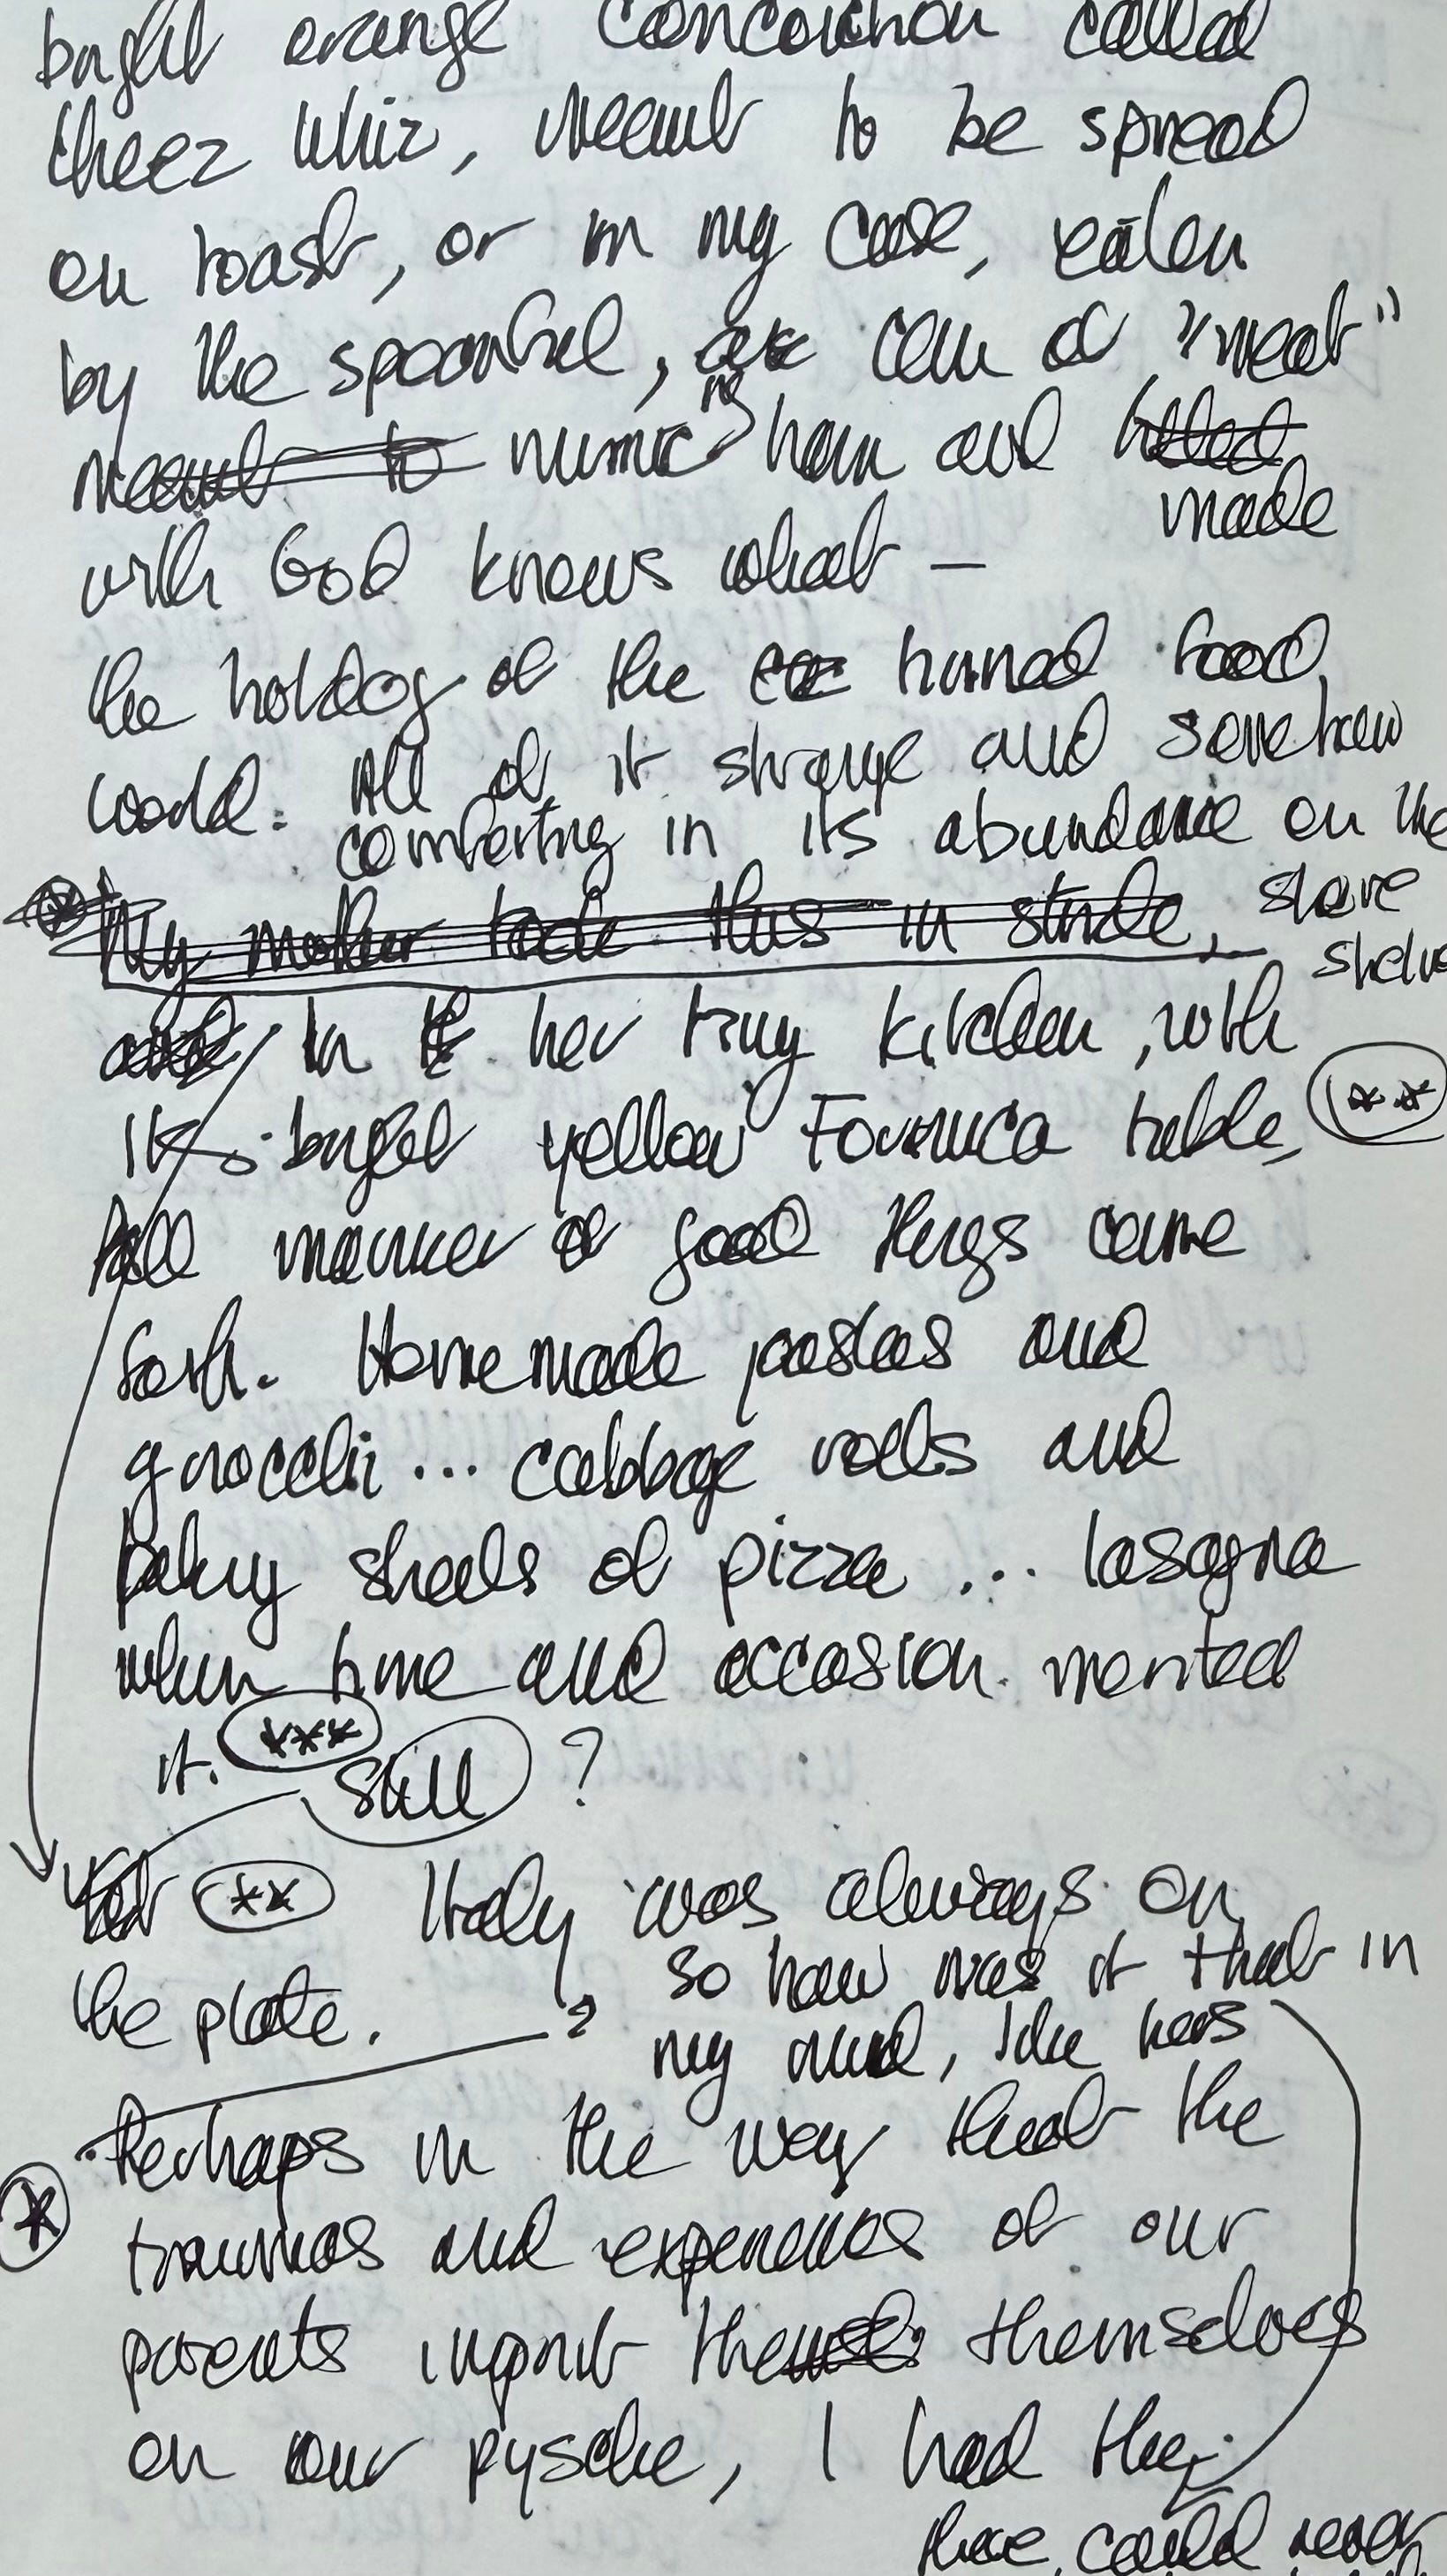 bright orange concoction called
Cheez Whiz, meant to be spread
on toast, or in my case, eaten
by the spoonful, a can of "meat"
meant to mimicing ham and
made
with God knows what —
the hotdog of the tinned food
world. All of it strange and somehow
comforting in its abundance on the
My mother took this in stride, store
shelve
In her tiny kitchen, with
its bright yellow Formica table, **
all manner of good things came
forth. Homemade pastas and
gnocchi ... cabbage rolls and
bakery sheets of pizza ... lasagna
when time and occasion merited
it. ***
still ?
Yet ** Italy was always on
so how was it that in
the plate. ?
my mind, like hers
Perhaps in the way that the
* traumas and experiences of our
parents imprint themselves
on our pysche, I had they
there could never